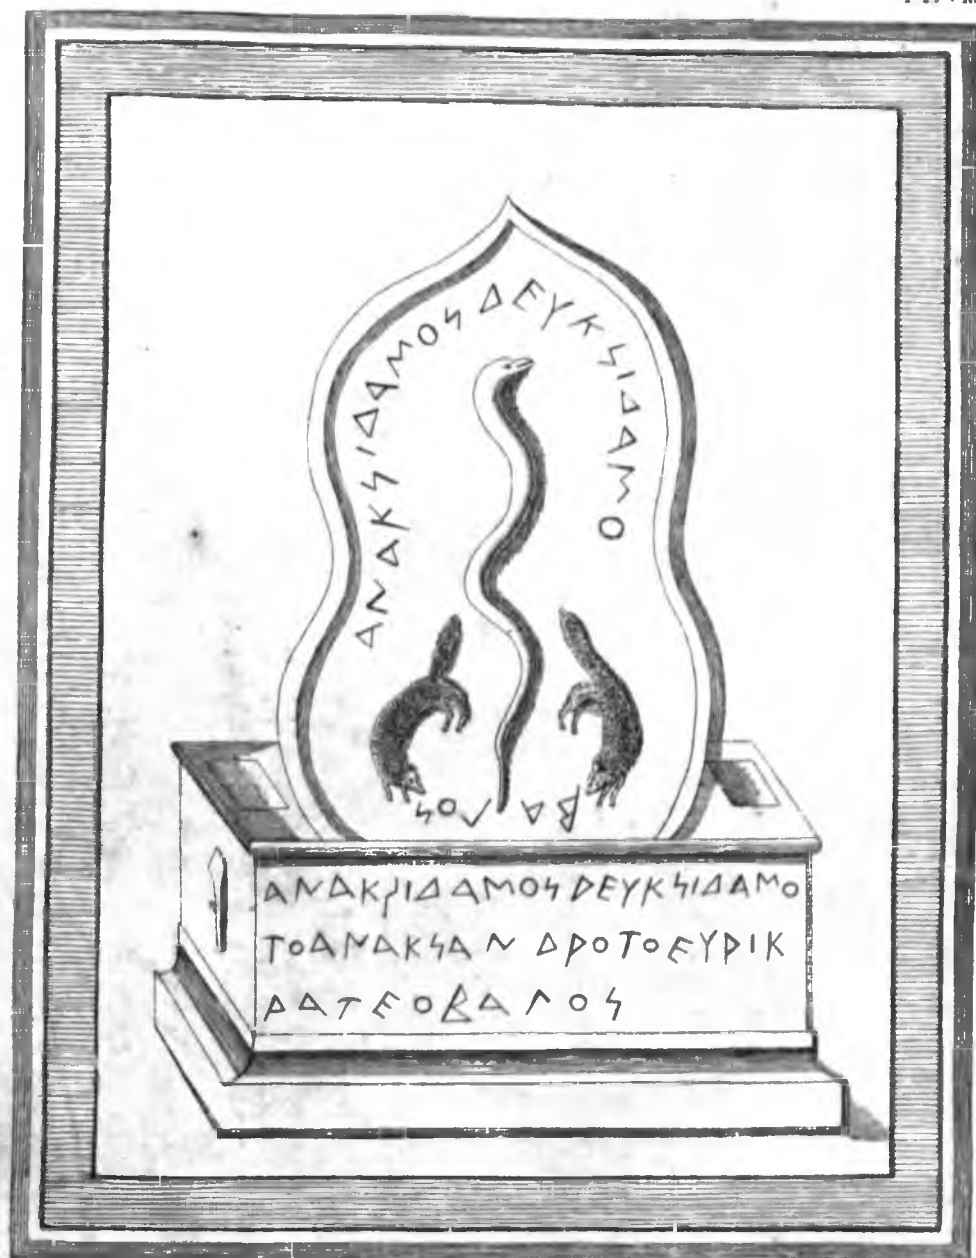 ΑΝΑΚΣΙΔΑΜΟΣ ΔΕΥΚΣΙΔΑΜΟ
ΒΑΓΟΣ
ΑΝΑΚΣΙΔΑΜΟΣ ΔΕΥΚΣΙΔΑΜΟ
ΤΟΑΝΑΚΣΑΝΔΡΟΤΟΕΥΡΙΚ
ΡΑΤΕΟΒΑΓΟΣ